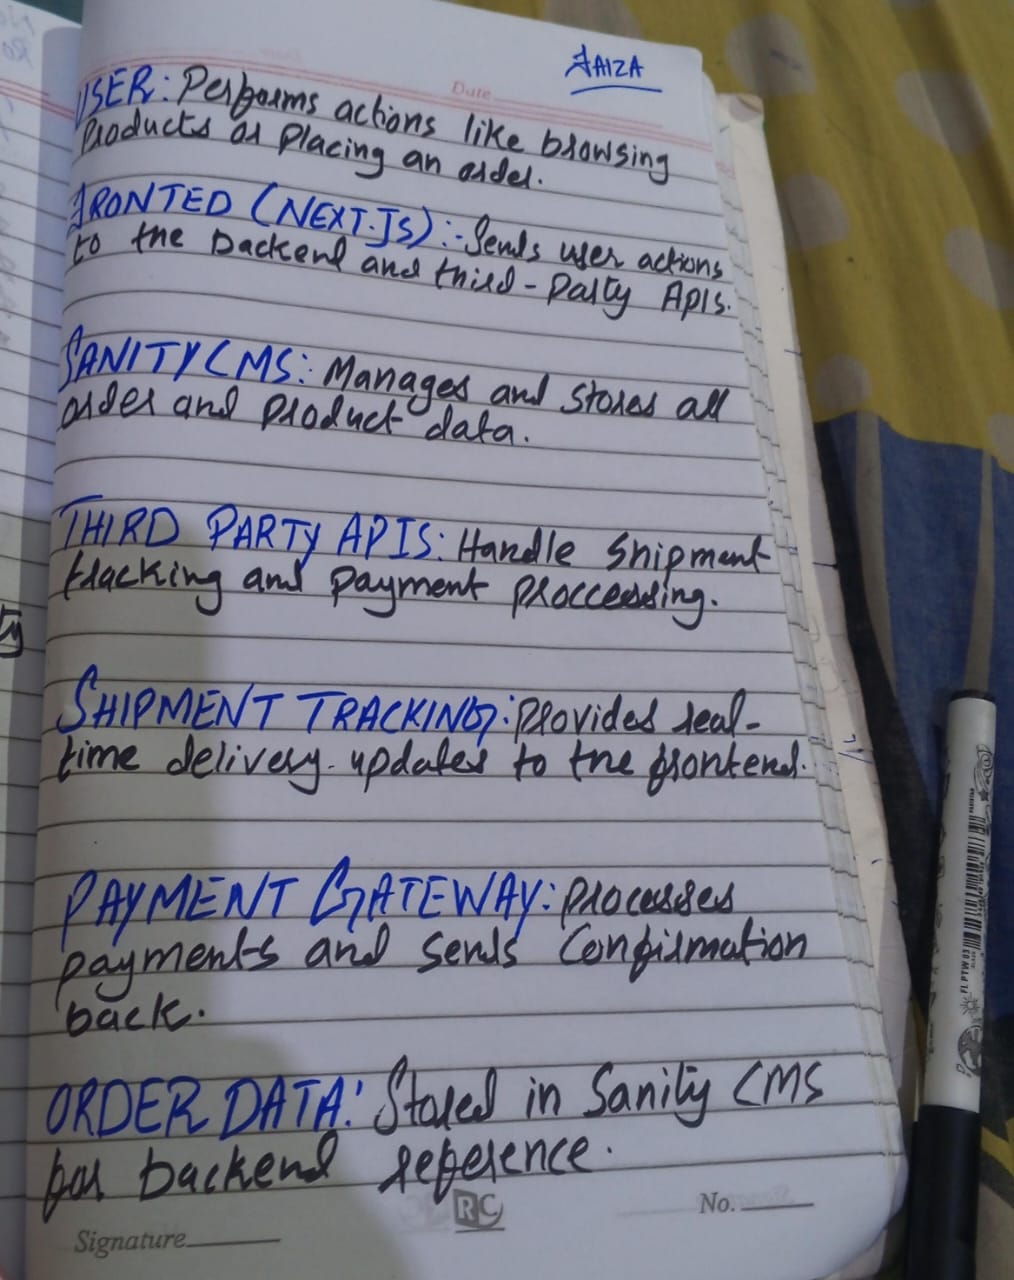 FAIZA
Date
USER: Performs actions like browsing
Products or Placing an order.
FRONTED (NEXT.JS):- Sends user actions
to the backend and third-Party APIs.
SANITY CMS: Manages and Stores all
order and product data.
THIRD PARTY APIS: Handle Shipment
tracking and payment proccessing.
SHIPMENT TRACKING: provides real-
time delivery updates to the frontend.
PAYMENT GATEWAY: processes
payments and sends Confirmation
back.
ORDER DATA: Stored in Sanity CMS
for backend reference.
RC
No.
Signature
FLPTW03